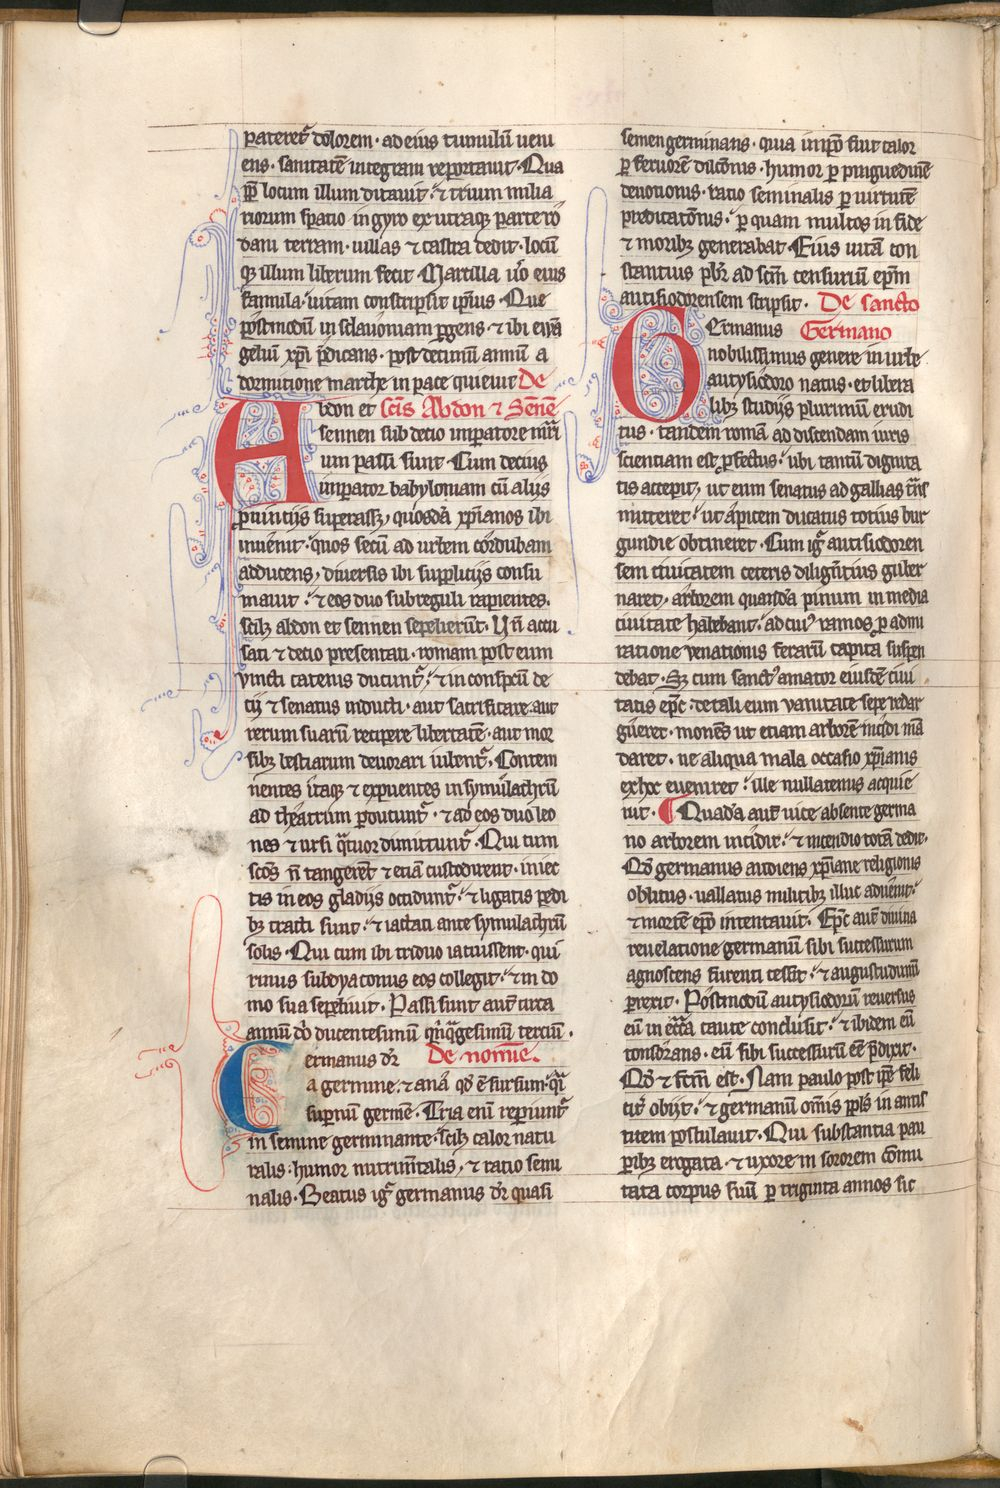 pateret᷑ dolorem · ad eius tumulū ueni
ens · sanitatē integram reportauit · Qua
pp̄ locum illum ditauit ⁊ trium milia
riorum spatio in gyro ex utraq; parte ro
dani terram · uillas ⁊ castra dedit · locū
q; illum liberum fecit · Martilla u̾o eius
famula · uitam conscripsit ip̄ius · Que
postmodū in sclauoniam ꝑgens · ⁊ ibi euā
geliū xp̄i p̄dicans · post decimū annū a
dormitione marthe in pace quieuit De
Abdon et sc̄is Abdon ⁊ Sēnē
sennen sub decio imperatore mr̄i
um passi sunt · Cum decius
imperator babyloniam cū alijs
prouincijs superass; quosdā xp̄ianos ibi
inuenit · quos secū ad urbem cordubam
adducens, diuersis ibi supplicijs consu
mauit · ⁊ eos duo subreguli rapientes.
scil; abdon et sennen sepelierūt · Hij accu
sati ⁊ decio presentati · romam post eum
vincti catenis ducunt᷑ · ⁊ in conspcū de
cij ⁊ senatus inducti · aut sacrificare aut
rerum suarū recipere libertatē · aut mor
sib; bestiarum deuorari iubent᷑, Contem
nentes itaq; ⁊ expuentes in symulachrū
ad theatrum ꝑducunt᷑ · ⁊ ad eos duo leo
nes ⁊ ursi q̄tuor dimittunt᷑ · Qui cum
scōs n̄ tangerēt ⁊ etiā custodirent · iniec
tis in eos gladijs occidunt᷑ · ⁊ ligatis pedi
b; tracti sunt · ⁊ iactati ante symulachrū
solis · Qui cum ibi triduo iacuissent · qui
rinus subdyaconus eos collegit · ⁊ in do
mo sua sepeliuit · Passi sunt aut̄ circa
annū dn̄i ducentesimū qn̄q̄gesimū tercium ·
Germanus dr̄ De nomīe.
a germine · ⁊ ana qd̄ ē sursum · q̄i
supernū germē · Tria enī reperiunt᷑
in semine germinante · scil; calor natu
ralis · humor nutrimentalis, ⁊ ratio semi
nalis · Beatus ig̾ germanus dr̄ quasi
semen germinans · quia in ip̄o fuit calor
ꝑ feruorē dilctionis · humor ꝑ pinguedinē
deuotionis · ratio seminalis ꝑ uirtutē
predicationis · ꝑ quam multos in fide
⁊ morib; generabat · Eius uitā con
stantius pb̄r ad scm̄ censuriū epm̄
autisiodorensem scripsit · De sancto
Germanus Germano
nobilissimus genere in urbe
autysiodoro natus · et libera
lib; studijs plurimū erudi
tus · tandem romā ad discendam iuris
scientiam est ꝓfectus · ubi tantū dignita
tis accepit, ut eum senatus ad gallias tr̄is
mitteret · ut apicem ducatus totius bur
gundie obtineret · Cum ig̾ autisiodoren
sem ciuitatem ceteris diligentius guber
naret, arborem quandā pinum in media
ciuitate habebant · ad cui᷒ ramos ꝓ admi
ratione venationis ferarū capita suspen
debat · S; cum sanct᷒ amator eiusdē ciui
tatis epc̄ · de tali eum vanitate sepe redar
gueret · monēs ut etiam arborē incidi mā
daret · ne aliqua mala occasio xp̄ianis
ex hoc eueniret · ille nullatenus acquie
uit · ¶ Quadā aut̄ uice absente germa
no arborem incidit · ⁊ incendio totā dedit.
Qd̄ germanus audiens xp̄iane religionis
oblitus · uallatus militib; illuc aduenit
⁊ mortē epō intentauit · Epc̄ aut̄ diuina
reuelatione germanū sibi successurum
agnoscens furenti cessit · ⁊ augustudunū
perrexit · Postmodū autysiodorū reuersus
eū in eccl̄ia caute conclusit · ⁊ ibidem eū
tonsorans · eū sibi successurū eē p̄dixit ·
Qd̄ ⁊ factū est · Nam paulo post ip̄e feli
cit᷑ obijt · ⁊ germanū om̄is pplūs in antis
titem postulauit · Qui substantia pau
ꝑib; erogata · ⁊ uxore in sororem cōmu
tata corpus suū ꝑ triginta annos sic